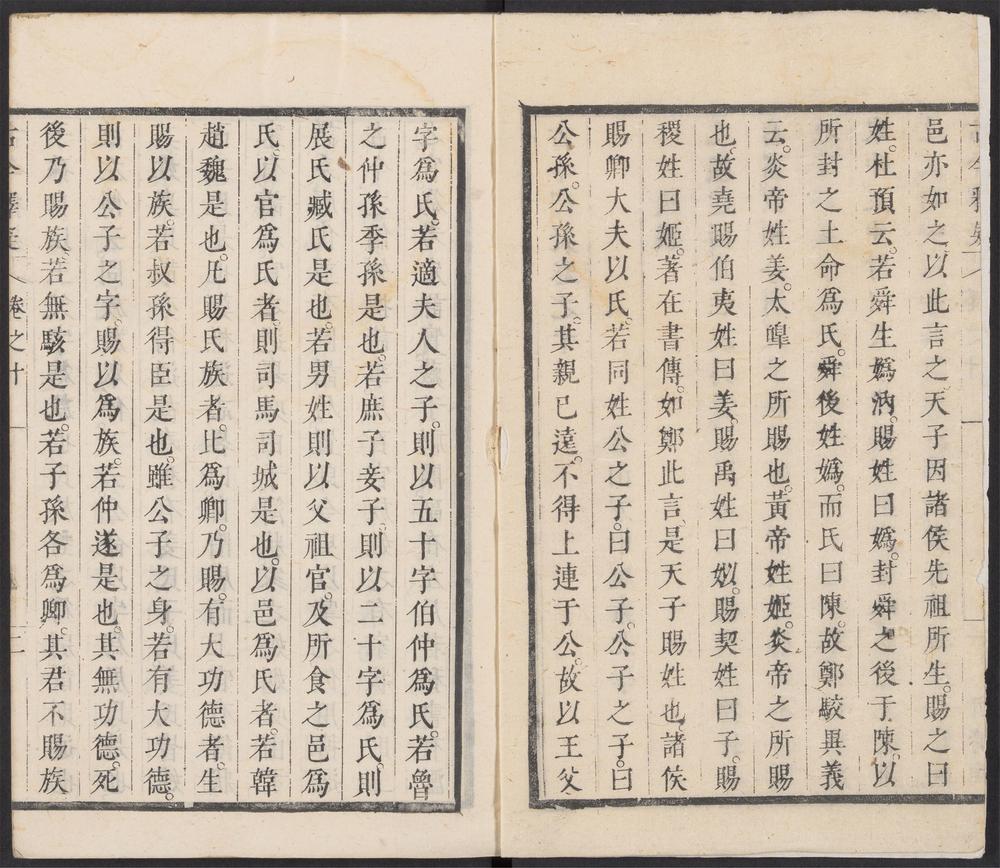 邑亦如之以此言之天子因諸侯先祖所生。賜之曰
姓。杜預云。若舜生嬀汭。賜姓曰嬀。封舜之後于陳。以
所封之土命爲氏。舜後姓嬀。而氏曰陳。故鄭駮異義
云。炎帝姓姜。太皥之所賜也。黃帝姓姬。炎帝之所賜
也。故堯賜伯夷姓曰姜。賜禹姓曰姒。賜契姓曰子。賜
稷姓曰姬。著在書傳。如鄭此言是天子賜姓也諸侯
賜卿大夫以氏。若同姓公之子。曰公子。公子之子。曰
公孫。公孫之子。其親已遠。不得上連于公。故以王父
字爲氏。若適夫人之子。則以五十字伯仲爲氏。若魯
之仲孫季孫是也。若庶子妾子。則以二十字爲氏。則
展氏臧氏是也。若男姓則以父祖官。及所食之邑爲
氏。以官爲氏者。則司馬司城是也。以邑爲氏者。若韓
趙魏是也。凡賜氏族者。比爲卿。乃賜。有大功德者。生
賜以族。若叔孫得臣是也。雖公子之身。若有大功德。
則以公子之字。賜以爲族。若仲遂是也。其無功德。死
後乃賜族。若無駭是也。若子孫各爲卿。其君不賜族。
卷之十